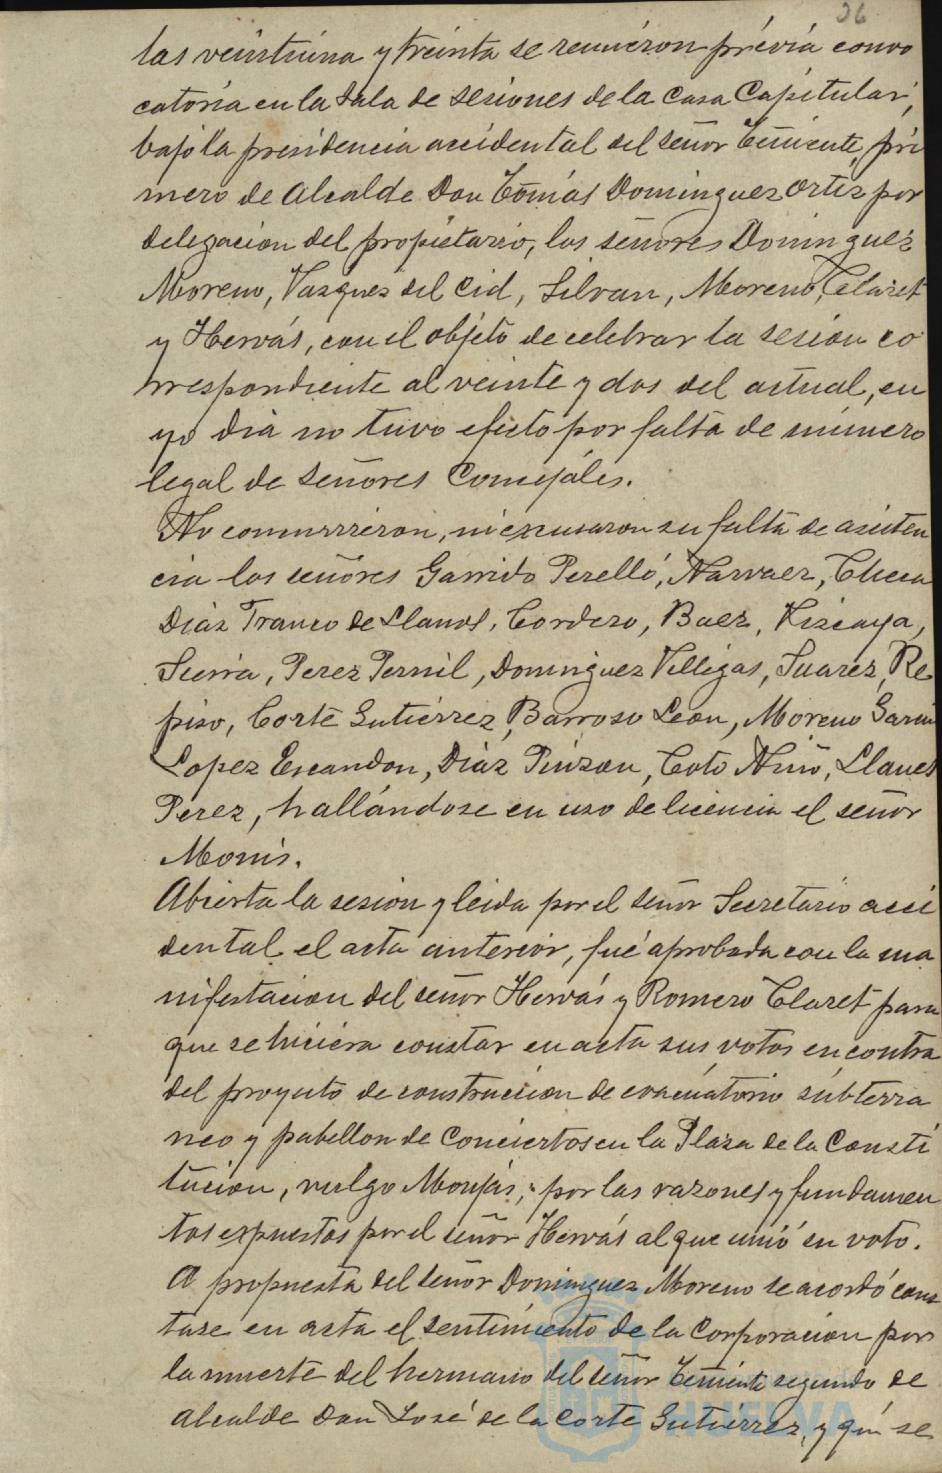 26
las veintiuna y treinta se reunieron prévia convo
catoria en la Sala de sesiones de la Casa Capitular,
bajo la presidencia accidental del señor Teniente pri
mero de Alcalde Don Tomás Dominguez Ortiz por
delegacion del propietario, los señores Dominguez
Moreno, Vazquez del Cid, Silvan, Moreno, Claret
y Hervás, con el objeto de celebrar la sesion co
rrespondiente al veinte y dos del actual, cu
yo dia no tuvo efecto por falta de número
legal de señores Concejáles.
No concurrieron, ni excusaron su falta de asisten
cia los señores Garrido Perelló, Narvaez, Checa
Diáz Franco de Llanos, Cordero, Baez, Vizcaya,
Sierra, Perez Pernil, Dominguez Villegas, Suarez, Re
piso, Corte Gutiérrez, Barroso Leon, Moreno Garcia
Lopez Escandon, Diáz Pinzon, Coto Niño, Llanes
Perez, hallándose en uso de licencia el señor
Monis.
Abierta la sesion y leida por el señor Secretario acci
dental el acta anterior, fué aprobada con la ma
nifestacion del señor Hervás y Romero Claret para
que se hiciera constar en acta sus votos en contra
del proyecto de construccion de evacuatorio subterra
neo y pabellon de Conciertos en la Plaza de la Consti
tucion, vulgo Monjas, por las razones y fundamen
tos expuestos por el señor Hervás al que unió su voto.
A propuesta del señor Dominguez Moreno se acordó cons
tase en acta el sentimiento de la Corporacion por
la muerte del hermano del señor Teniente segundo de
Alcalde Don José de la Corte Gutierrez, y que se
HUELVA